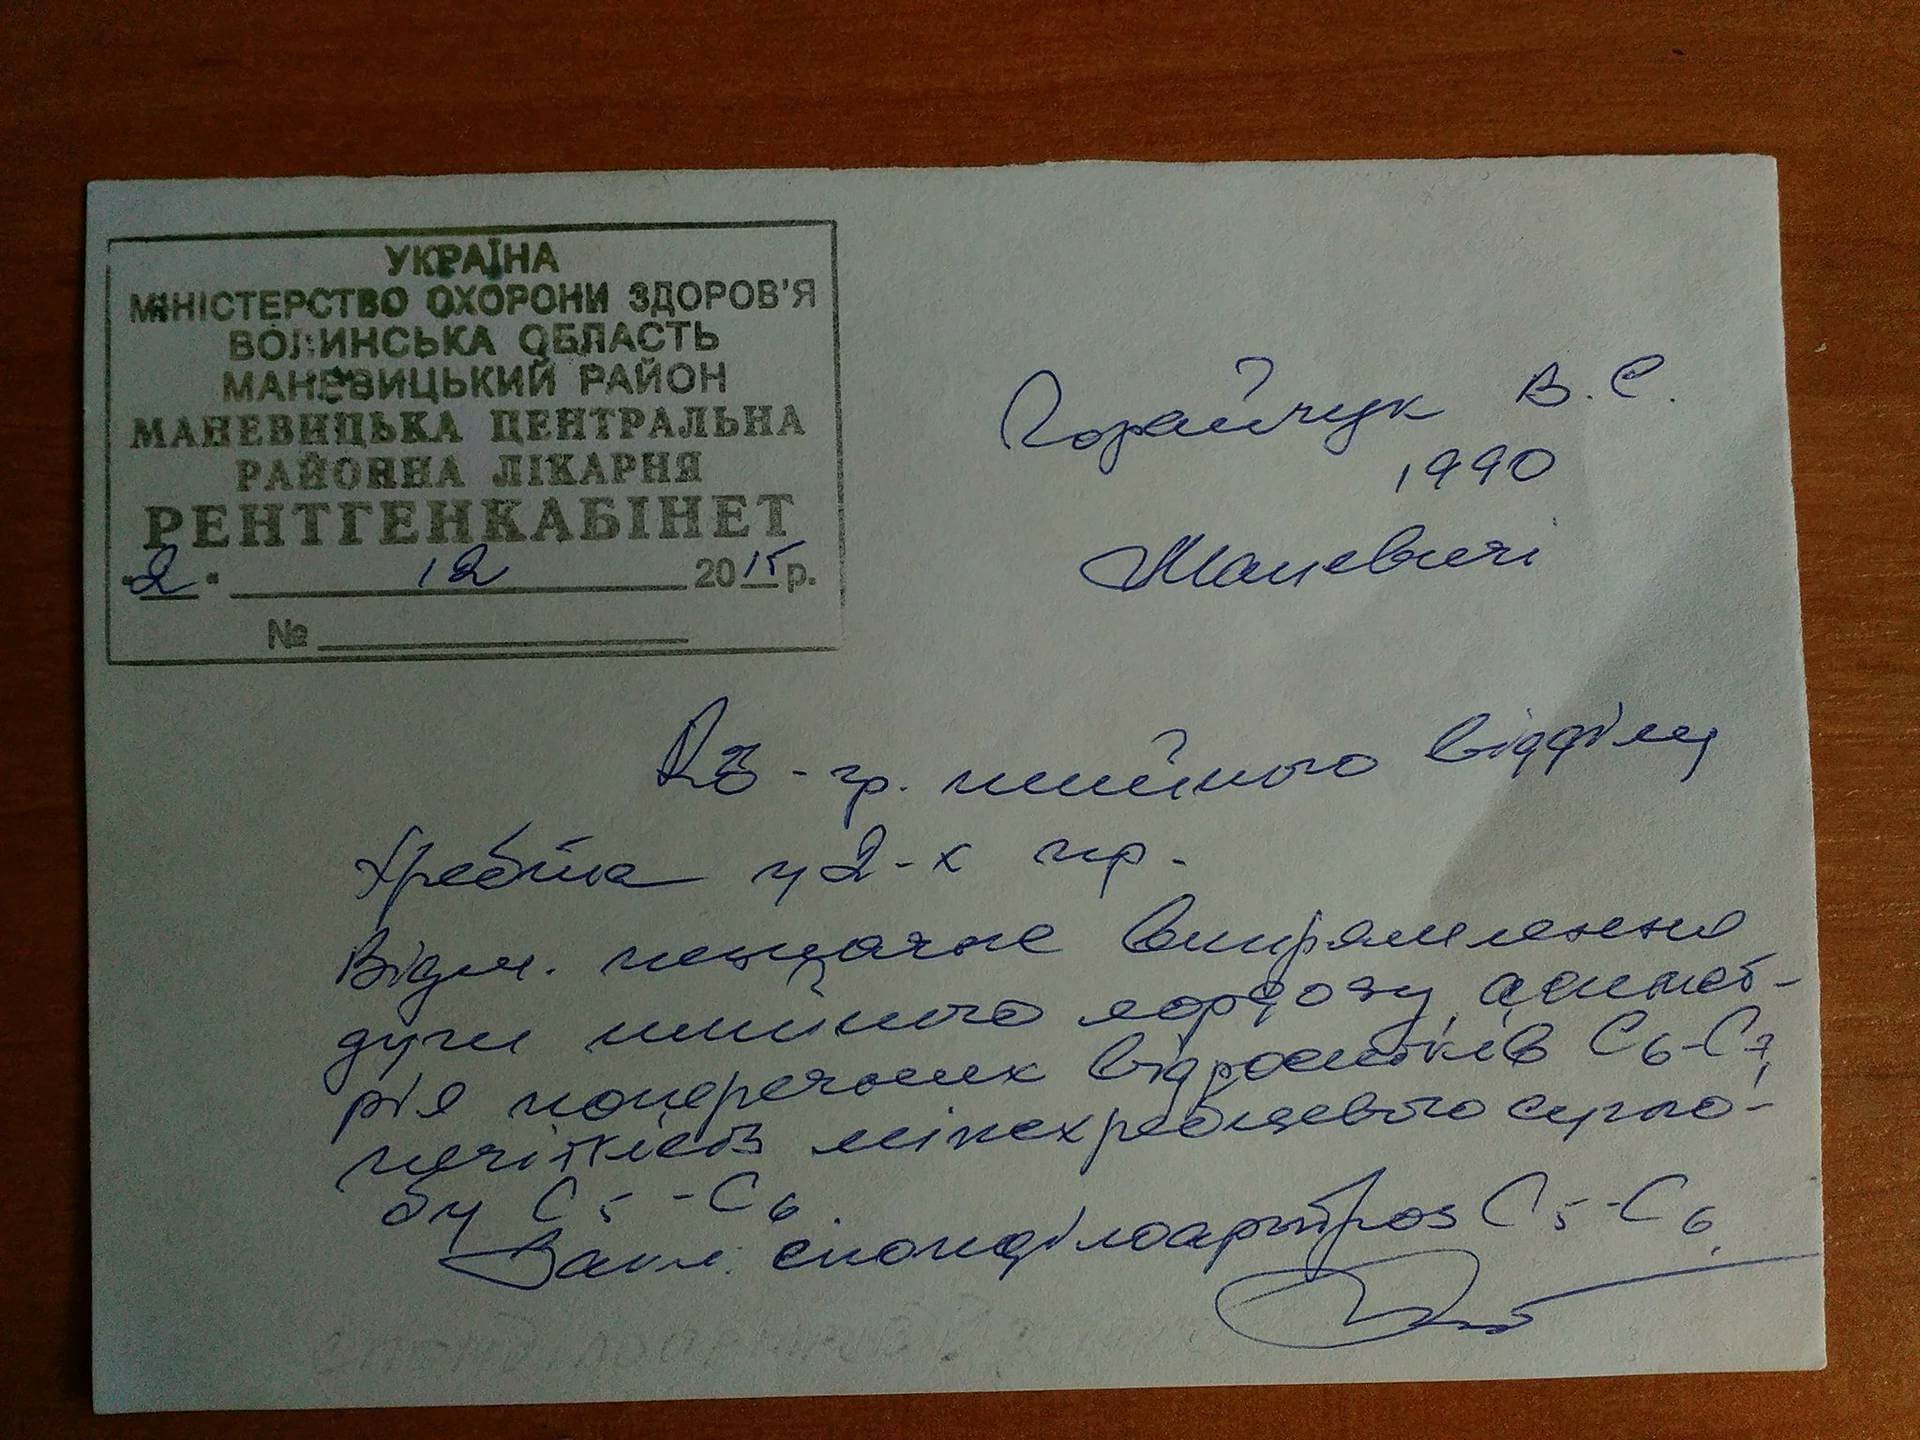 УКРАЇНА
МІНІСТЕРСТВО ОХОРОНИ ЗДОРОВ'Я
ВОЛИНСЬКА ОБЛАСТЬ
МАНЕВИЦЬКИЙ РАЙОН
МАНЕВИЦЬКА ЦЕНТРАЛЬНА
РАЙОННА ЛІКАРНЯ
РЕНТГЕНКАБІНЕТ
"2" 12 2015 р.
№
Горайчук В.С.
1990
Маневичі
Rö-гр. шийного відділу
хребта у 2-х пр.
Відм. незначне випрямлення
дуги шийного лордозу, асимет-
рія поперечних відростків С6-С7,
нечіткість міжхребцевого сугло-
бу С5-С6.
Закл: спонділоартроз С5-С6.